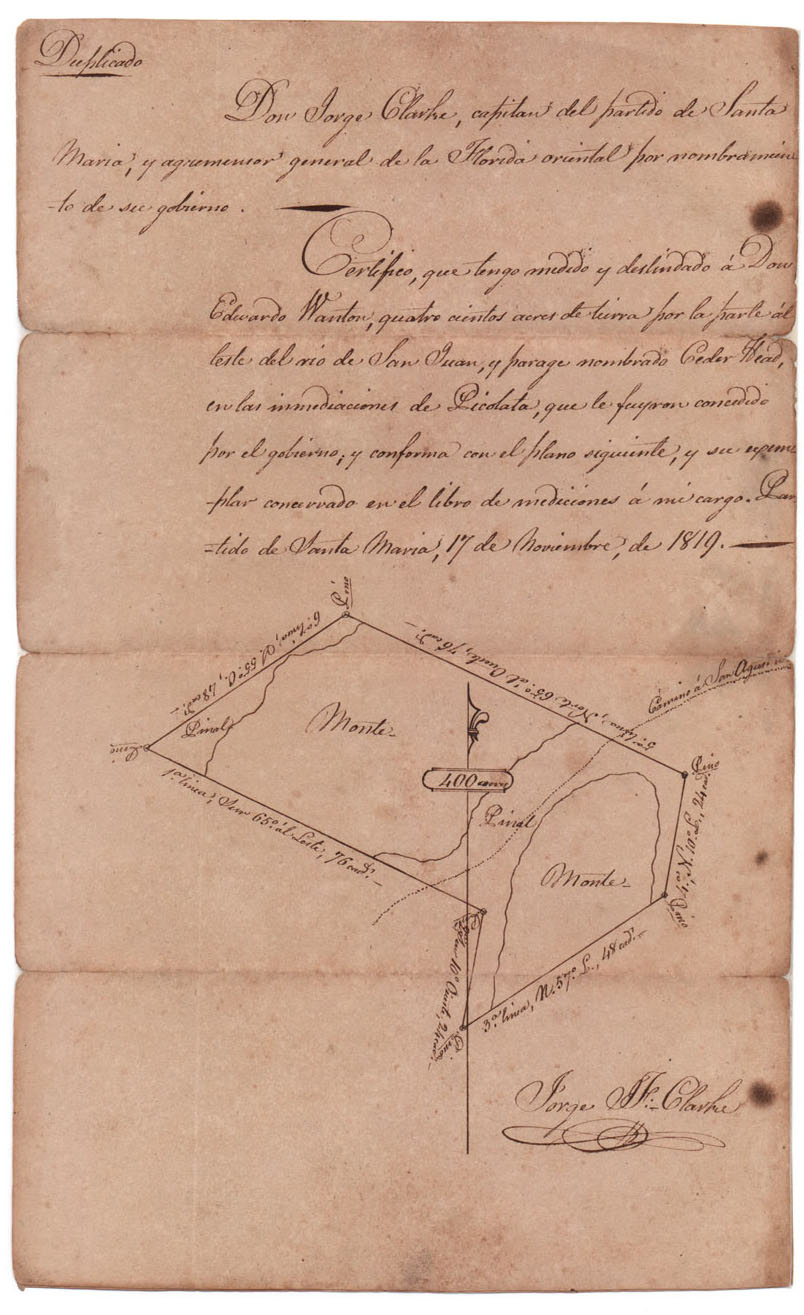 Duplicado
Don Jorge Clarke, capitan del partido de Santa
Maria, y agrimensor general de la Florida oriental por nombramien
-to de su gobierno.
Certifico, que tengo medido y deslindado á Don
Edwardo Wanton, quatro cientos acres de tierra por la parte ál
leste del rio de San Juan, y parage nombrado Ceder Head,
en las inmediaciones de Picolata, que le fueron concedido
por el gobierno; y conforma con el plano siguiente, y su exem
-plar concervado en el libro de mediciones á mi cargo. Par
-tido de Santa Maria, 17 de Noviembre, de 1819.
Pino
6ª linea, S. 55º O., 48 cad.s
5ª linea, Norte 65º al Oeste, 76 cad.s
Camino á San Agustin
Pinal
Monte
Pino
400 acres
Pino
1ª linea, Sur 65º ál Leste, 76 cad.s
Pinal
Monte
4ª N. 10º L., 24 cad.s
Pino
Pino
2ª Sur 10º Oeste, 24 cad.s
3ª linea, N. 57º L., 48 cad.s
Pino
Jorge J. F. Clarke